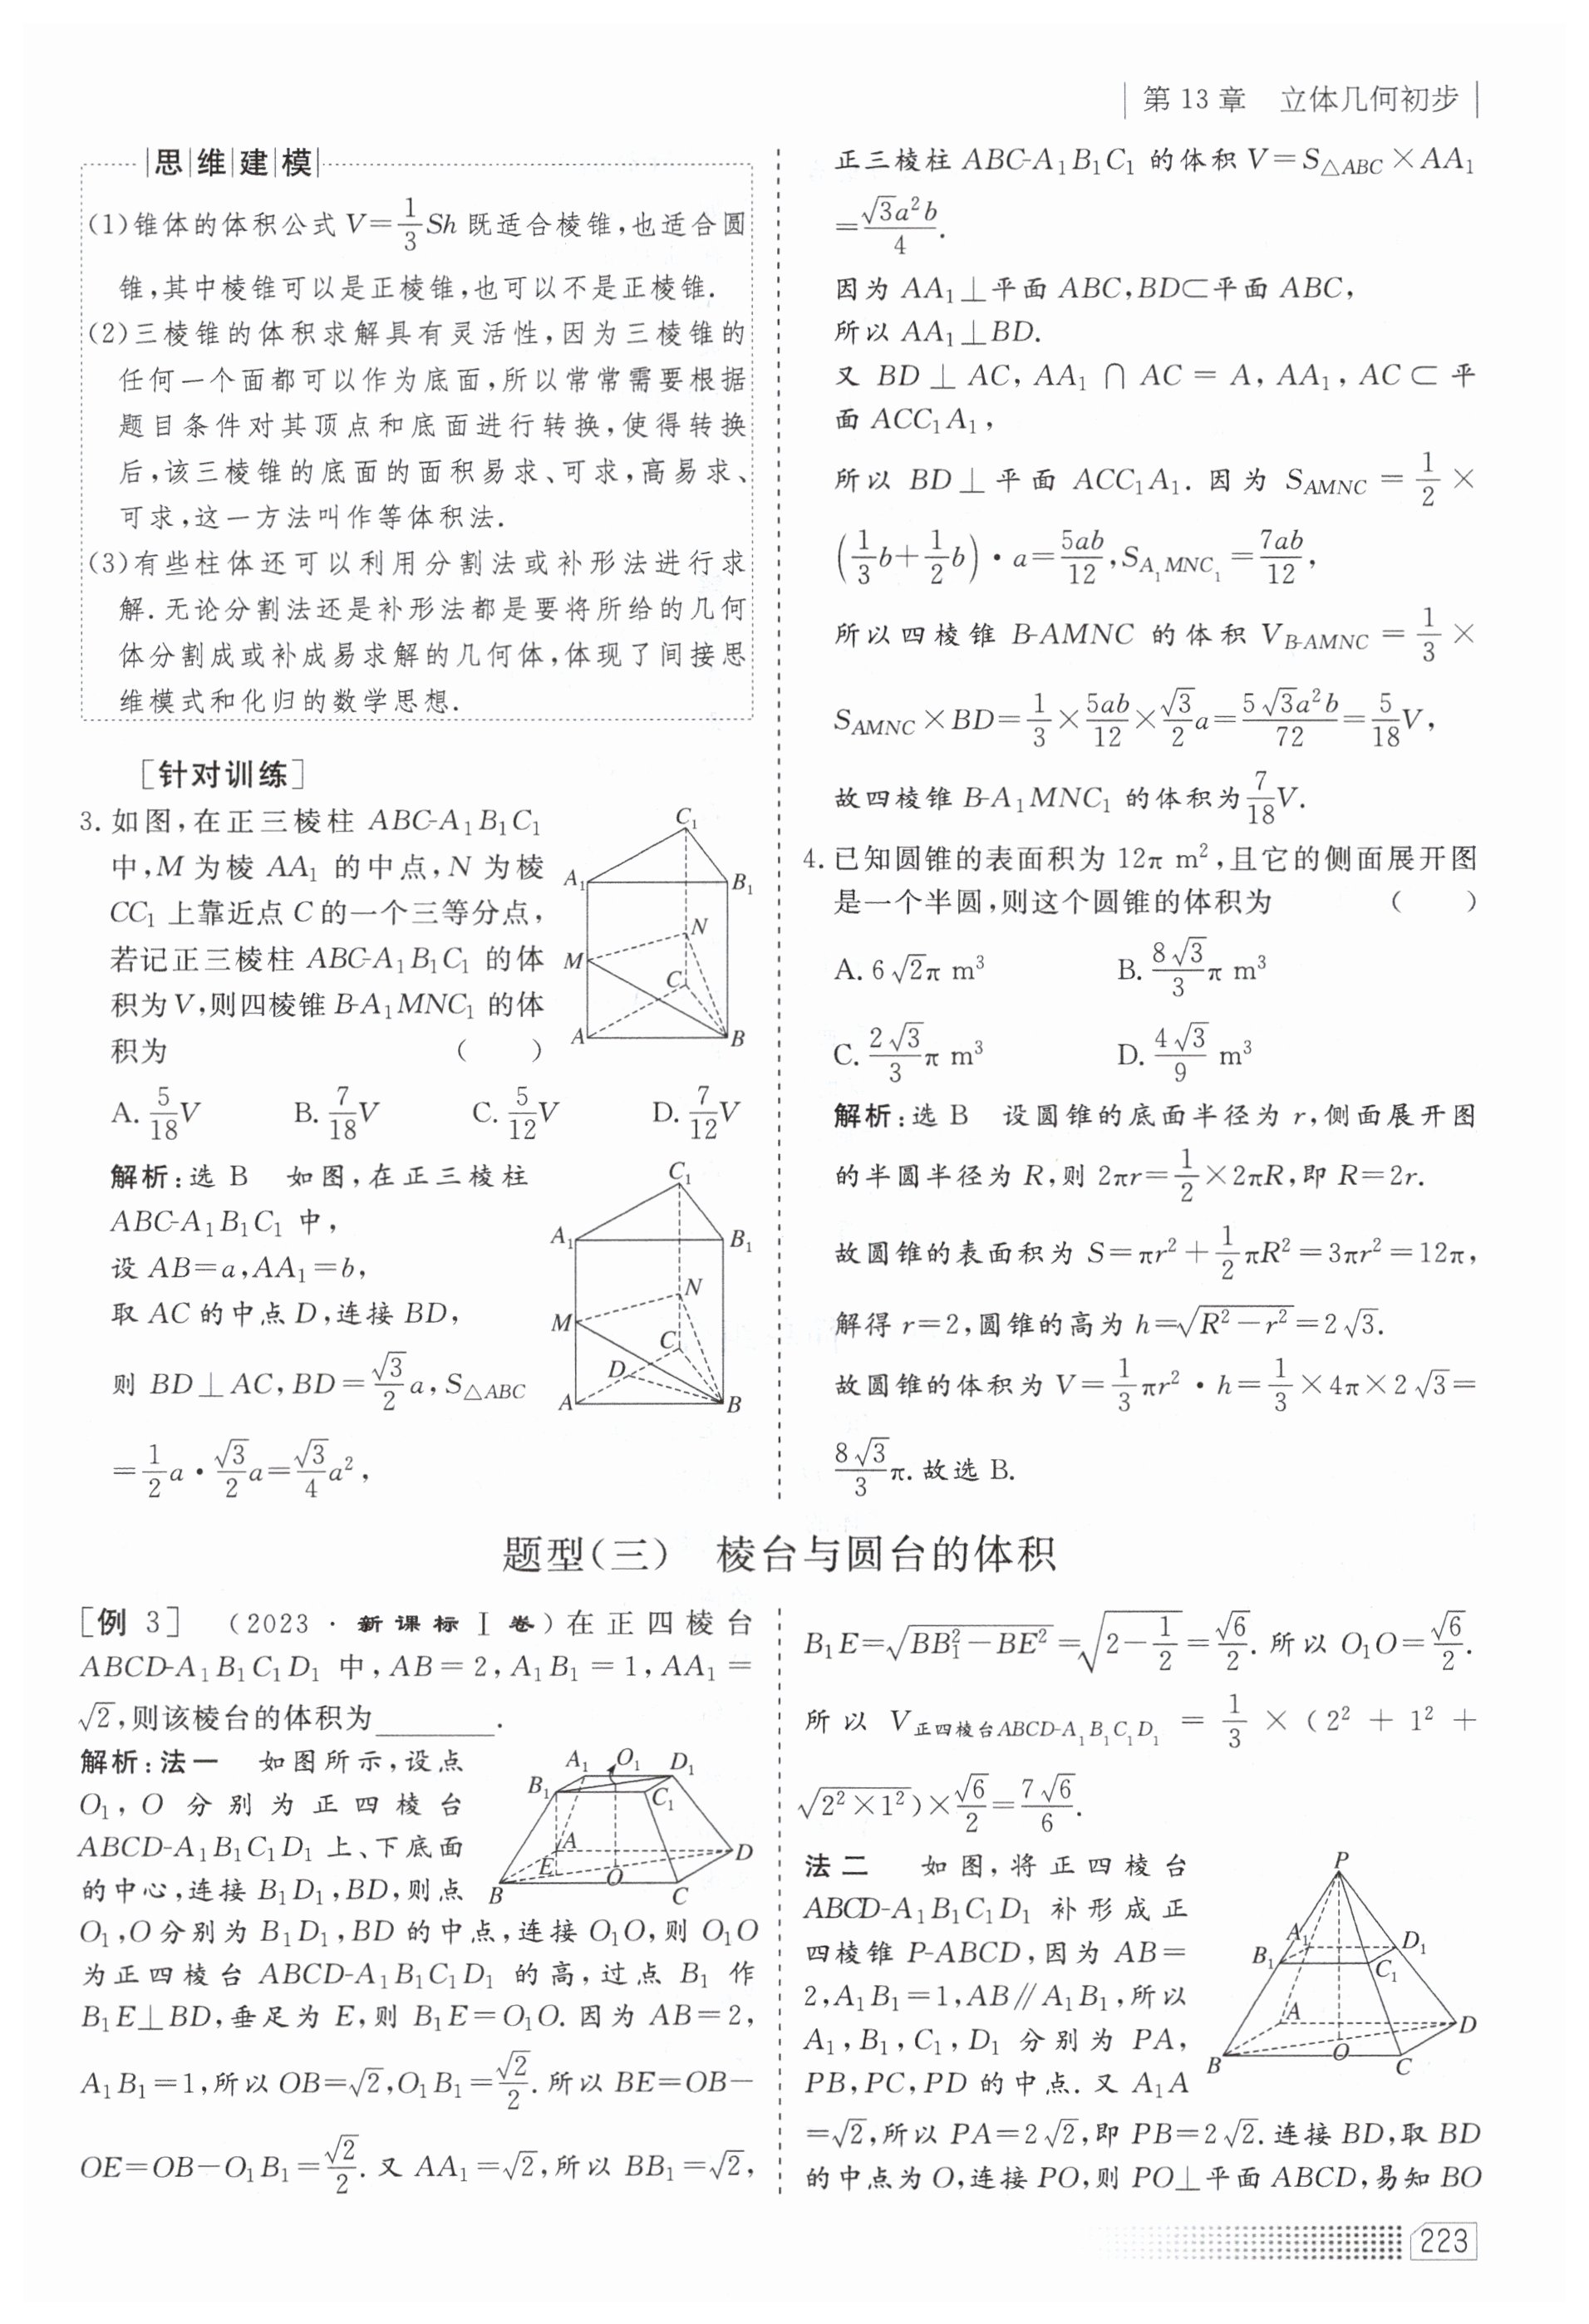 第 13 章 立体几何初步
思维建模
(1)锥体的体积公式 V=\frac{1}{3}Sh 既适合棱锥,也适合圆
锥,其中棱锥可以是正棱锥,也可以不是正棱锥.
(2)三棱锥的体积求解具有灵活性,因为三棱锥的
任何一个面都可以作为底面,所以常常需要根据
题目条件对其顶点和底面进行转换,使得转换
后,该三棱锥的底面的面积易求、可求,高易求、
可求,这一方法叫作等体积法.
(3)有些柱体还可以利用分割法或补形法进行求
解.无论分割法还是补形法都是要将所给的几何
体分割成或补成易求解的几何体,体现了间接思
维模式和化归的数学思想.
[针对训练]
3.如图,在正三棱柱 ABC-A₁B₁C₁
中,M 为棱 AA₁ 的中点,N 为棱
CC₁ 上靠近点 C 的一个三等分点,
若记正三棱柱 ABC-A₁B₁C₁ 的体
积为 V,则四棱锥 B-A₁MNC₁ 的体
积为 ( )
C₁
A₁ B₁
N
M
C
A B
A. \frac{5}{18}V B. \frac{7}{18}V C. \frac{5}{12}V D. \frac{7}{12}V
解析:选 B 如图,在正三棱柱
ABC-A₁B₁C₁ 中,
设 AB=a,AA₁=b,
取 AC 的中点 D,连接 BD,
则 BD⊥AC,BD=\frac{\sqrt{3}}{2}a,S△ABC
=\frac{1}{2}a·\frac{\sqrt{3}}{2}a=\frac{\sqrt{3}}{4}a²,
C₁
A₁ B₁
N
M
C
D
A B
正三棱柱 ABC-A₁B₁C₁ 的体积 V=S△ABC×AA₁
=\frac{\sqrt{3}a²b}{4}.
因为 AA₁⊥平面 ABC,BD⊂平面 ABC,
所以 AA₁⊥BD.
又 BD⊥AC,AA₁∩AC=A,AA₁,AC⊂平
面 ACC₁A₁,
所以 BD⊥平面 ACC₁A₁.因为 S_{AMNC}=\frac{1}{2}×
(\frac{1}{3}b+\frac{1}{2}b)·a=\frac{5ab}{12},S_{A₁MNC₁}=\frac{7ab}{12},
所以四棱锥 B-AMNC 的体积 V_{B-AMNC}=\frac{1}{3}×
S_{AMNC}×BD=\frac{1}{3}×\frac{5ab}{12}×\frac{\sqrt{3}}{2}a=\frac{5\sqrt{3}a²b}{72}=\frac{5}{18}V,
故四棱锥 B-A₁MNC₁ 的体积为\frac{7}{18}V.
4.已知圆锥的表面积为 12π m²,且它的侧面展开图
是一个半圆,则这个圆锥的体积为 ( )
A. 6\sqrt{2}π m³ B. \frac{8\sqrt{3}}{3}π m³
C. \frac{2\sqrt{3}}{3}π m³ D. \frac{4\sqrt{3}}{9} m³
解析:选 B 设圆锥的底面半径为 r,侧面展开图
的半圆半径为 R,则 2πr=\frac{1}{2}×2πR,即 R=2r.
故圆锥的表面积为 S=πr²+\frac{1}{2}πR²=3πr²=12π,
解得 r=2,圆锥的高为 h=\sqrt{R²-r²}=2\sqrt{3}.
故圆锥的体积为 V=\frac{1}{3}πr²·h=\frac{1}{3}×4π×2\sqrt{3}=
\frac{8\sqrt{3}}{3}π.故选 B.
题型(三) 棱台与圆台的体积
[例 3] (2023·新课标Ⅰ卷)在正四棱台
ABCD-A₁B₁C₁D₁ 中,AB=2,A₁B₁=1,AA₁=
\sqrt{2},则该棱台的体积为________.
解析:法一 如图所示,设点
O₁,O 分别为正四棱台
ABCD-A₁B₁C₁D₁ 上、下底面
的中心,连接 B₁D₁,BD,则点
A₁ O₁ D₁
B₁ C₁
A
E D
O
B C
O₁,O 分别为 B₁D₁,BD 的中点,连接 O₁O,则 O₁O
为正四棱台 ABCD-A₁B₁C₁D₁ 的高,过点 B₁ 作
B₁E⊥BD,垂足为 E,则 B₁E=O₁O.因为 AB=2,
A₁B₁=1,所以 OB=\sqrt{2},O₁B₁=\frac{\sqrt{2}}{2}.所以 BE=OB-
OE=OB-O₁B₁=\frac{\sqrt{2}}{2}.又 AA₁=\sqrt{2},所以 BB₁=\sqrt{2},
B₁E=\sqrt{BB₁²-BE²}=\sqrt{2-\frac{1}{2}}=\frac{\sqrt{6}}{2}.所以 O₁O=\frac{\sqrt{6}}{2}.
所以 V_{正四棱台ABCD-A₁B₁C₁D₁}=\frac{1}{3}×(2²+1²+
\sqrt{2²×1²})×\frac{\sqrt{6}}{2}=\frac{7\sqrt{6}}{6}.
法二 如图,将正四棱台
ABCD-A₁B₁C₁D₁ 补形成正
四棱锥 P-ABCD,因为 AB=
2,A₁B₁=1,AB∥A₁B₁,所以
A₁,B₁,C₁,D₁ 分别为 PA,
PB,PC,PD 的中点.又 A₁A
P
A₁ D₁
B₁ C₁
A
D
O
B C
=\sqrt{2},所以 PA=2\sqrt{2},即 PB=2\sqrt{2}.连接 BD,取 BD
的中点为 O,连接 PO,则 PO⊥平面 ABCD,易知 BO
223